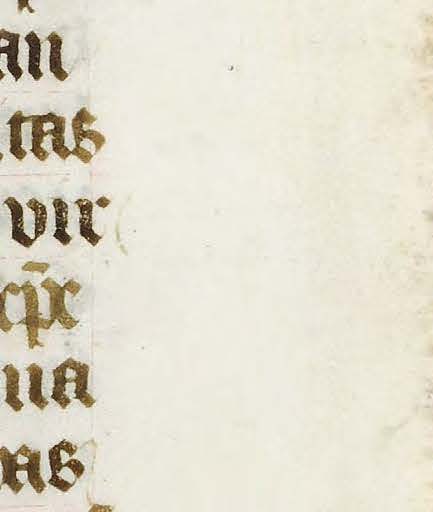 an
tas
vir
cp̄c
na
as